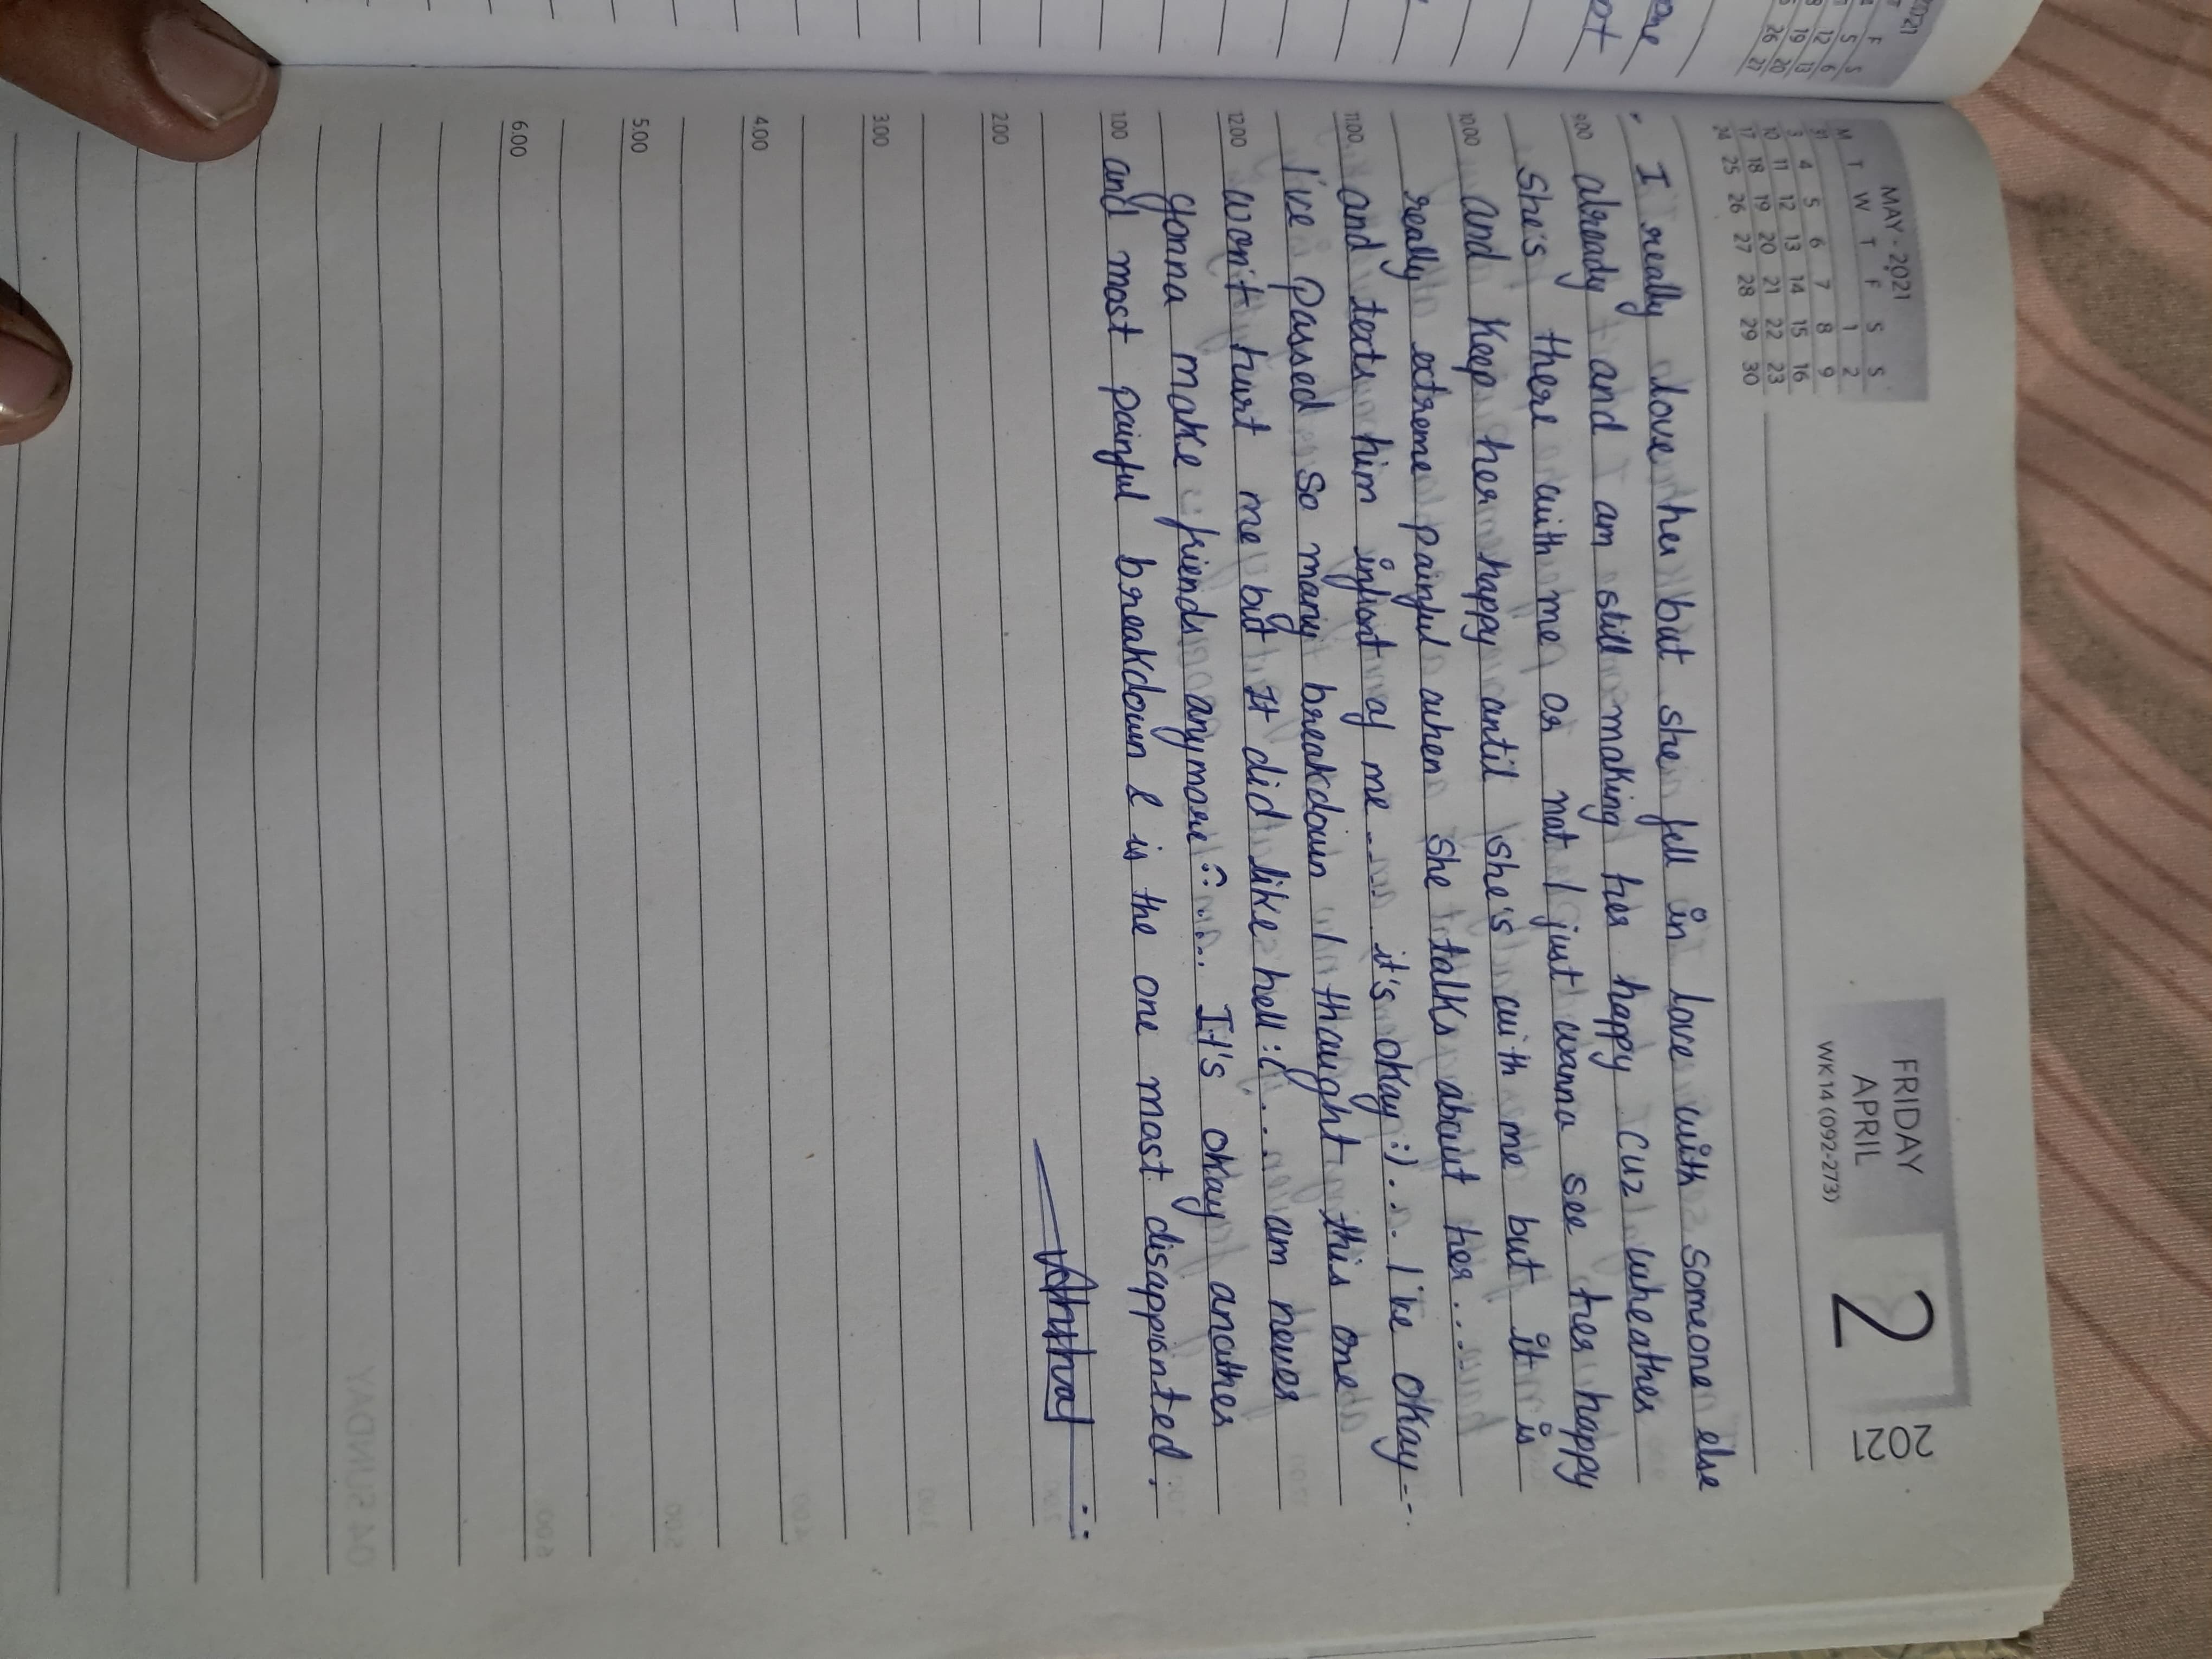 MAY - 2021
M T W T F S S
31 1 2
3 4 5 6 7 8 9
10 11 12 13 14 15 16
17 18 19 20 21 22 23
24 25 26 27 28 29 30
FRIDAY
APRIL
WK 14 (092-273)
2
2021
I really love her but she fell in love with someone else
9.00 already and I am still making her happy cuz wheather
She's there with me or not I just wanna see her happy
10.00 and Keep her happy until she's with me but it is
really extreme painful when she talks about her....
11.00 and texts him infront of me .... it's okay :) ... I'ke okay --..
I've passed so many breakdown I thought this one
12.00 won't hurt me but It did like hell :( ... am never
gonna make friends anymore :..... It's okay another
1.00 and most painful breakdown & is the one most disappointed.
2.00
3.00
4.00
5.00
6.00
2021
F S
5 6
12 13
19 20
26 27
one
ot
04 SUNDAY